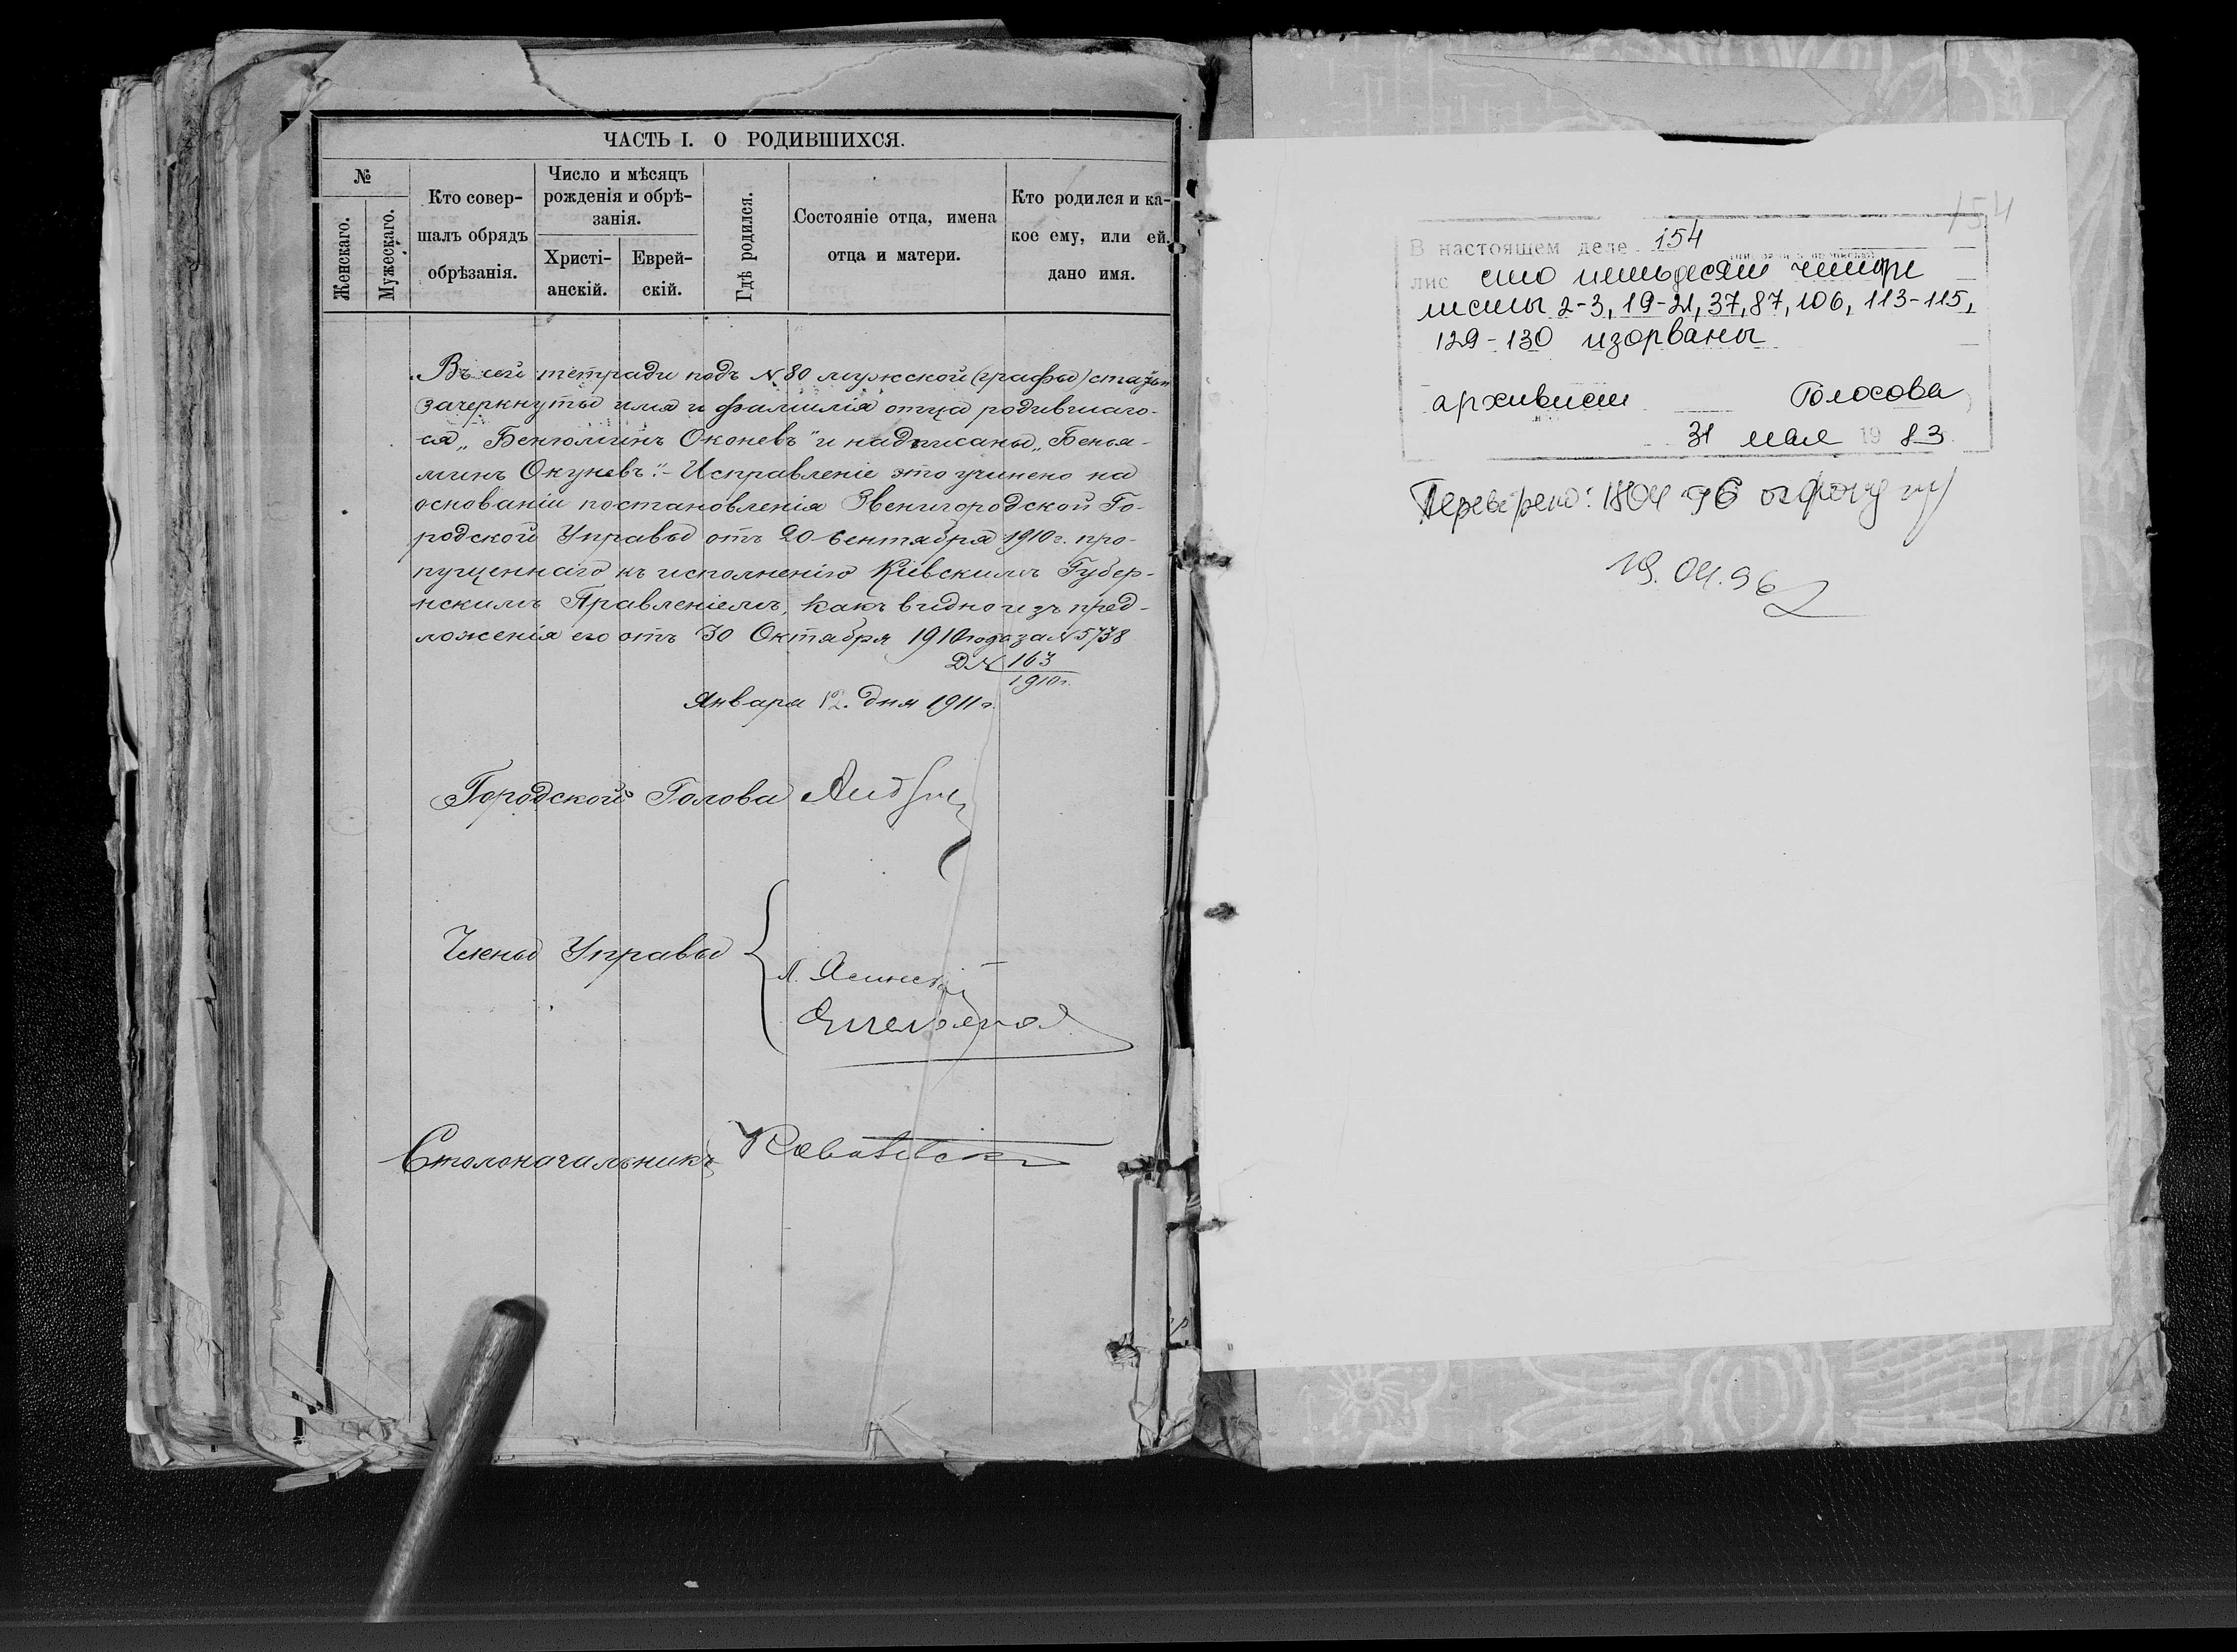 ЧАСТЬ I. О РОДИВШИХСЯ.
№
Женскаго.
Мужескаго.
Кто совер-
шалъ обрядъ
обрѣзанія.
Число и мѣсяцъ
рожденія и обрѣ-
занія.
Христі-
анскій.
Еврей-
скій.
Гдѣ родился.
Состояніе отца, имена
отца и матери.
Кто родился и ка-
кое ему, или ей,
дано имя.
Въ сей тетради подъ № 80 мужской (графы) статьи
зачеркнуты имя и фамилія отца родившаго-
ся „Бенюминъ Оконевъ" и надписаны „Бенья-
минъ Окуневъ".- Исправленіе это учинено на
основаніи постановленія Звенигородской Го-
родской Управы отъ 20 Сентября 1910 г. про-
пущеннаго къ исполненію Кіевскимъ Губер-
нскимъ Правленіемъ, какъ видно изъ пред-
ложенія его отъ 30 Октября 1910 года за № 5738
Д № 163
1910 г.
Января 12 дня 1911 г.
Городской Голова
Члены Управы
Л. Ясинскій
Столоначальникъ
154
В настоящем деле 154
лис сто пятьдесят четыре
листы 2-3, 19-21, 37, 87, 106, 113-115,
129-130 изорваны
архивист Голосова
31 мая 1983
19.04.96